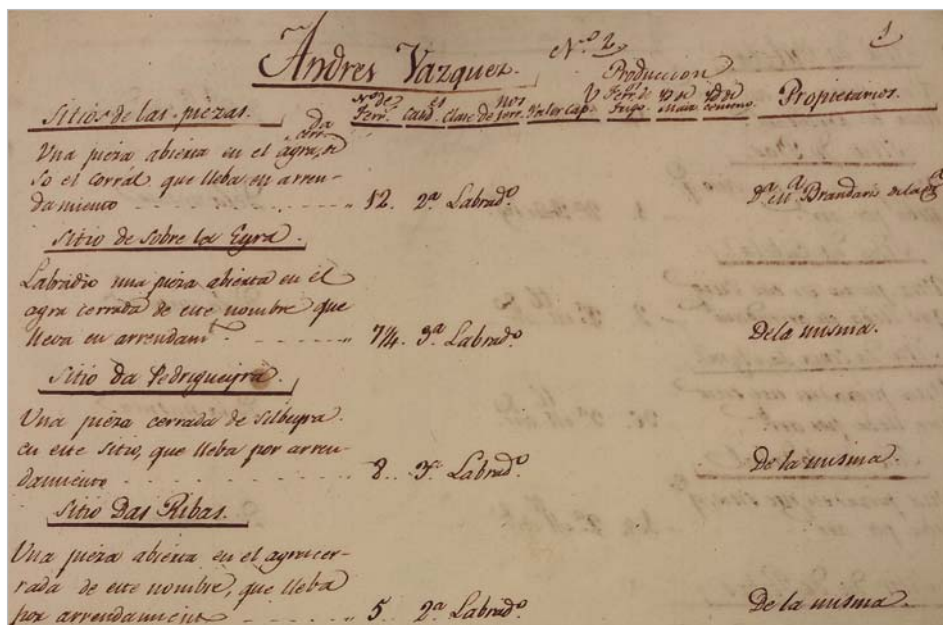 1
Andres Vazquez. Nº. 2
Produccion
Sitios de las piezas. Nº. de Ferr. Calid.es Clase de terr.nos Valor Cap. Ferr.s de trigo. Yd de Maiz Yd de centeno. Propietarios.
Una pieza abierta en el agra cerrda de
so el corrál que lleba en arren-
damiento 12. 2ª Labradº. Dª. Mª. Brandaris de la
Sitio de sobre la Eyra.
Labradio una pieza abierta en el
agra cerrada de este nombre que
lleva en arrendamtº 7¼. 3ª Labradº. De la misma.
Sitio da Pedrigueyra.
Una pieza cerrada de silbeyra
en este sitio, que lleba por arren-
damiento 8.. 3ª. Labradº. De la misma.
Sitio Das Ribas.
Una pieza abierta en el agra cer-
rada de este nombre, que lleba
por arrendamientº 5. 2ª Labradº. De la misma.